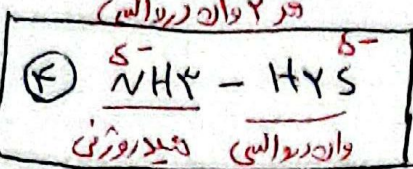 هر ۲ واندروالسی
۴ NH۳ - H۲S
δ- δ-
هیدروژنی واندروالسی